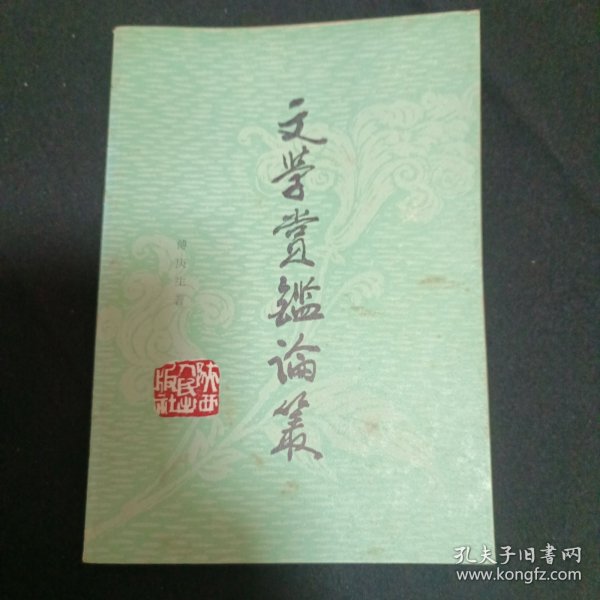 文学赏鑑論叢
傅庚生著
陕西人民出版社
孔夫子旧书网
www.kongfz.com